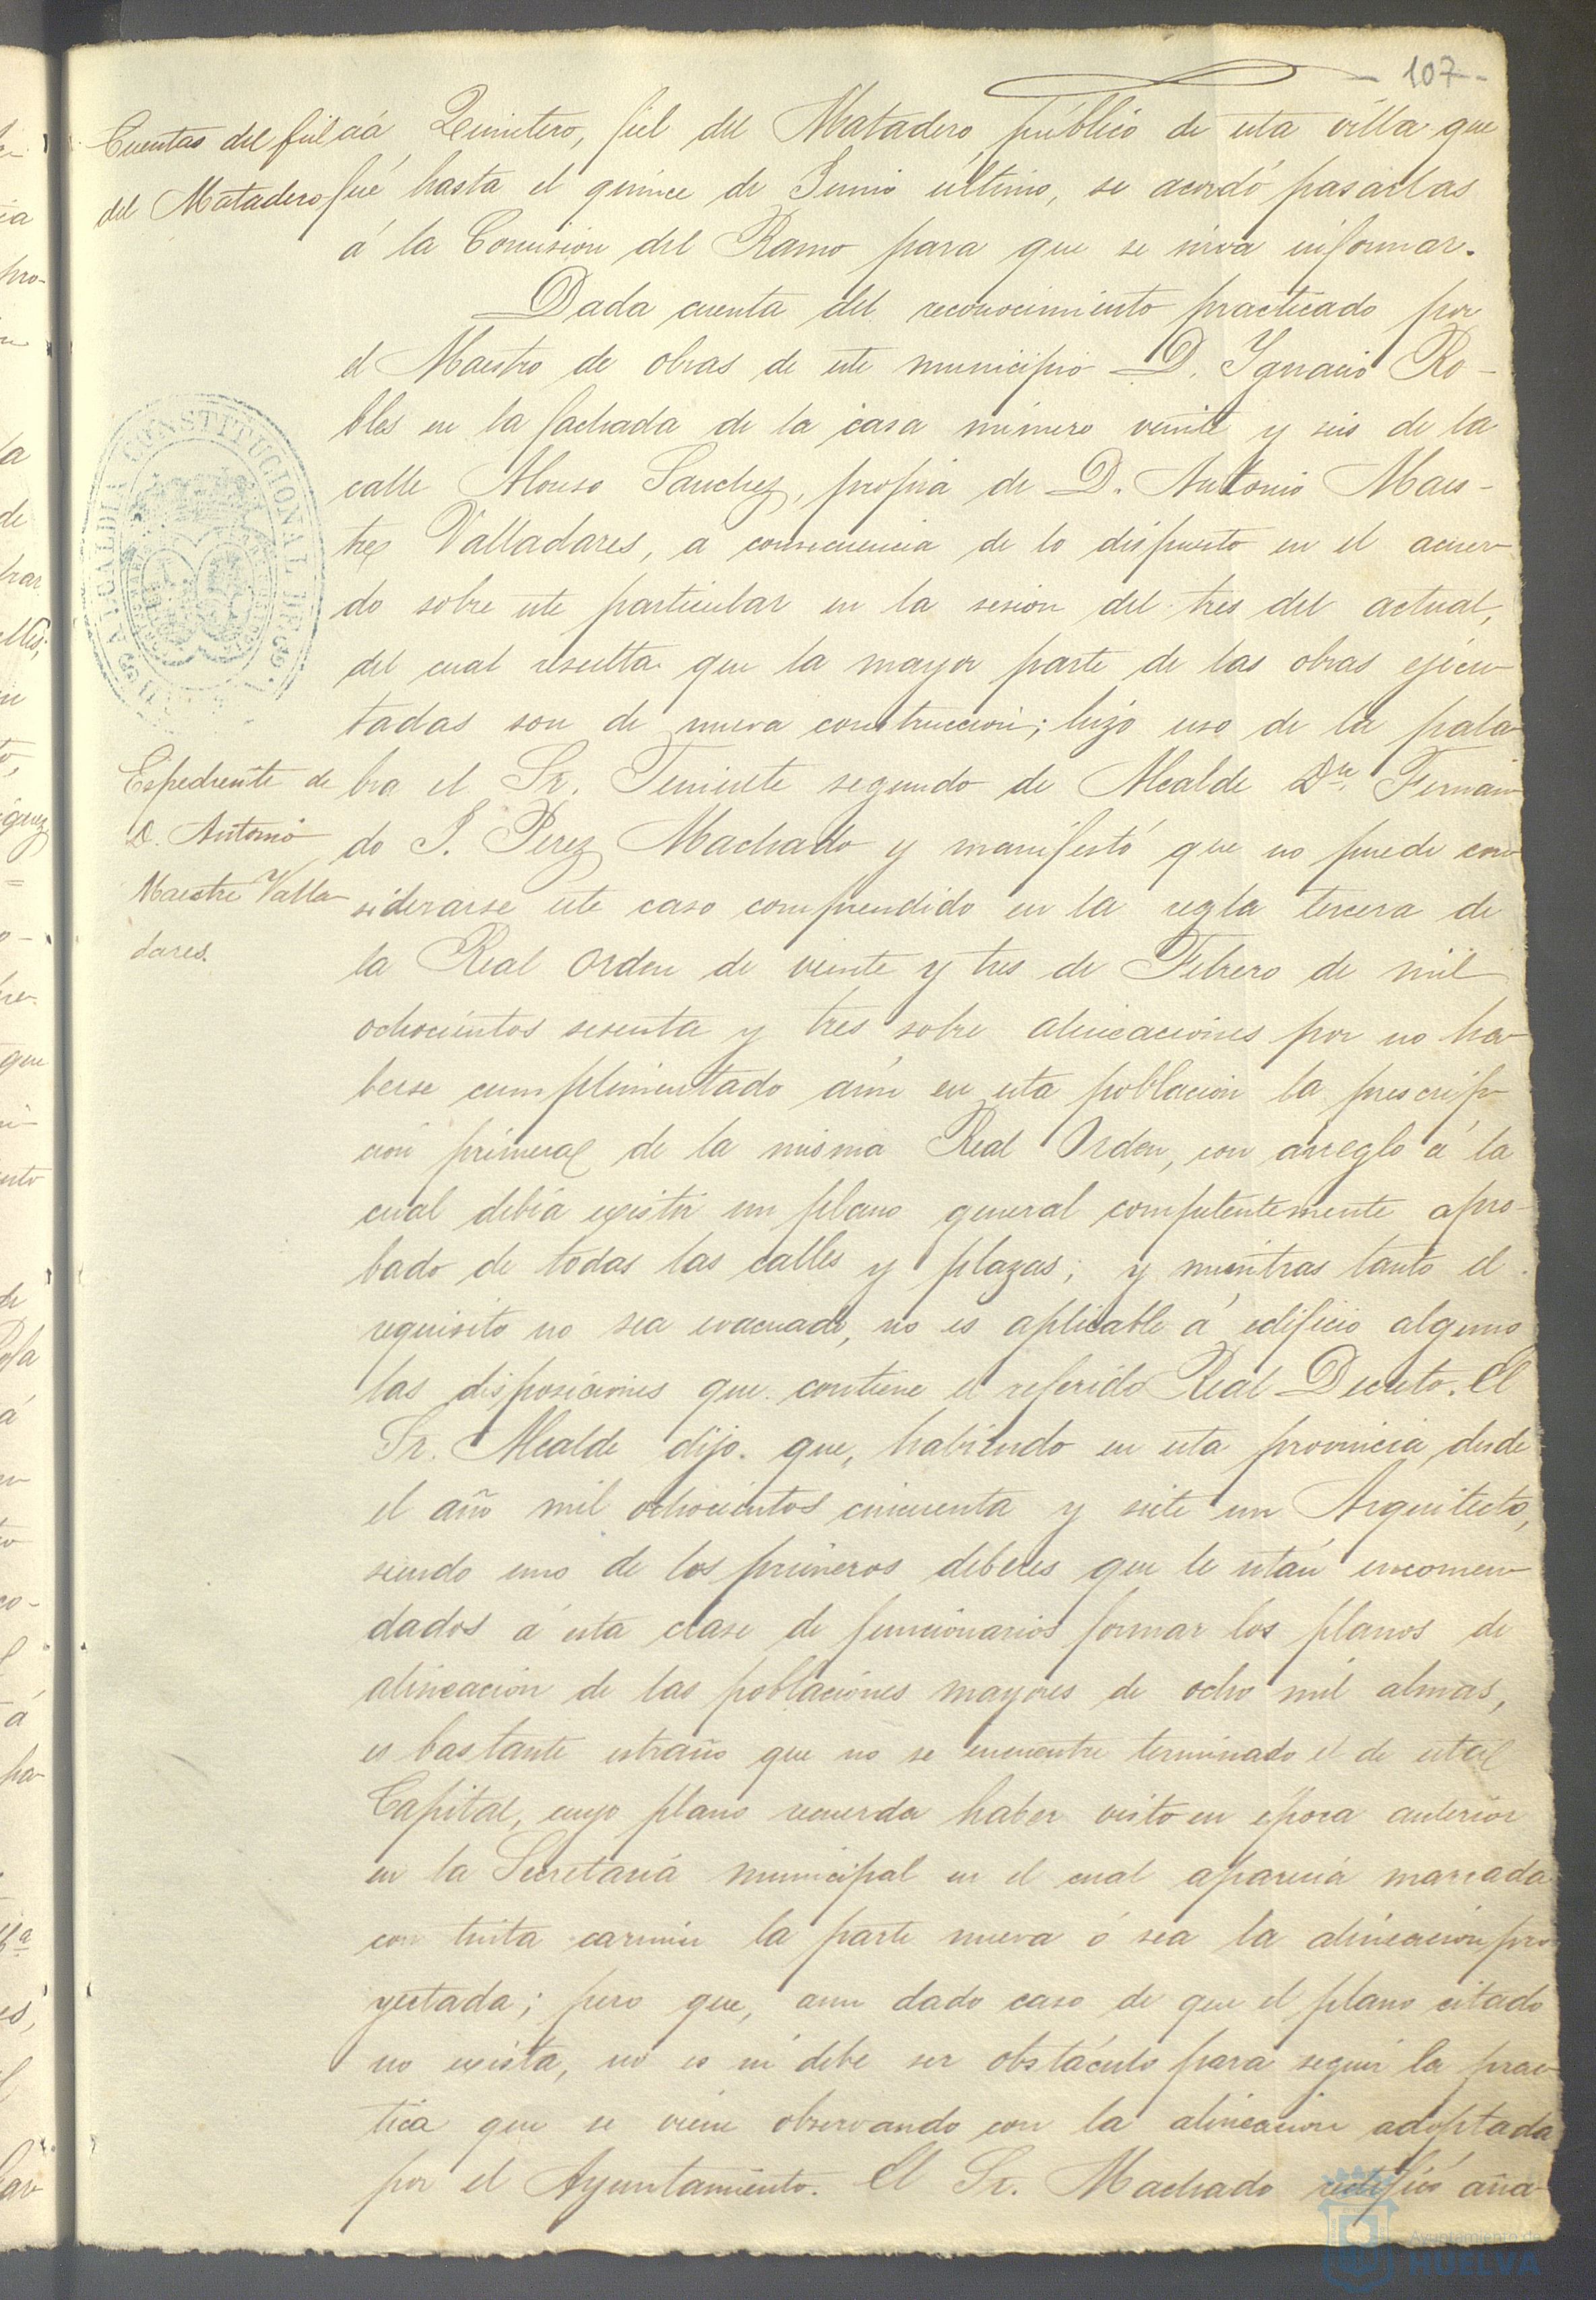 107
Cuentas del fiel
del Matadero
cia Quintero, fiel del Matadero público de esta villa que
fué hasta el quince de Junio último, se acordó pasarlas
á la Comision del Ramo para que se sirva informar.
Dada cuenta del reconocimiento practicado por
el Maestro de obras de este municipio D. Ygnacio Ro-
bles en la fachada de la casa número veinte y seis de la
calle Alonso Sanchez, propia de D. Antonio Maes-
tre Valladares, a consecuencia de lo dispuesto en el acuer-
do sobre este particular en la sesion del tres del actual,
del cual resulta que la mayor parte de las obras ejecu-
tadas son de nueva construccion; hizo uso de la pala-
Espediente de
D. Antonio
Maestre Valla-
dares.
bra el Sr. Teniente segundo de Alcalde Dn. Fernan-
do J. Perez Machado y manifestó que no puede con-
siderarse este caso comprendido en la regla tercera de
la Real orden de veinte y tres de Febrero de mil
ochocientos sesenta y tres sobre alineaciones por no ha-
berse cumplimentado aún en esta poblacion la prescrip-
cion primera de la misma Real Orden, con arreglo á la
cual debia existir un plano general competentemente apro-
bado de todas las calles y plazas; y mientras tanto el
requisito no sea evacuado, no es aplicable á edificio alguno
las disposiciones que contiene el referido Real Decreto. El
Sr. Alcalde dijo que, habiendo en esta provincia, desde
el año mil ochocientos cincuenta y siete un Arquitecto,
siendo uno de los primeros deberes que le están encomen-
dados á esta clase de funcionarios formar los planos de
alineacion de las poblaciones mayores de ocho mil almas,
es bastante estraño que no se encuentre terminado el de esta
Capital, cuyo plano recuerda haber visto en época anterior
en la Secretaria municipal en el cual aparecia marcada
con tinta carmin la parte nueva ó sea la alineacion pro-
yectada; pero que, aun dado caso de que el plano citado
no exista, no es ni debe ser obstáculo para seguir la prac-
tica que se viene observando con la alineacion adoptada
por el Ayuntamiento. El Sr. Machado rectificó aña-
ALCALDIA CONSTITUCIONAL
Ayuntamiento de
HUELVA